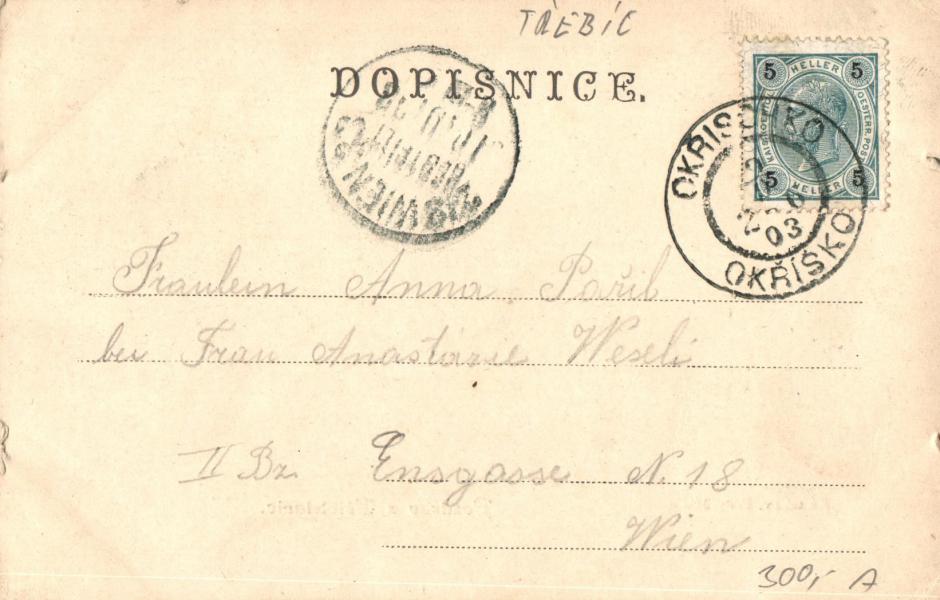 TŘEBÍC
DOPISNICE.
5 HELLER 5
KAIS. KOENIGL. OESTERR. POST
5 HELLER 5
OKŘÍŠKO
03
OKŘÍŠKO
WIEN
Fräulein Anna Pařil
bei Frau Anastazie Weseli
II Bz. Ensgasse N. 18
Wien
300,- A